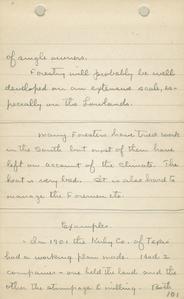 of single owners.
Forestry will probably be well
developed on an extensive scale, es-
pecially on the Lowlands.
Many Foresters have tried work
in the South but most of them have
left on account of the climate. The
heat is very bad. It is also hard to
manage the Foremen etc.
Examples.
In 1901 the Kirby Co. of Texas
had a working plan made. Had 2
companies - one held the land and the
other the stumpage & milling. Both
101